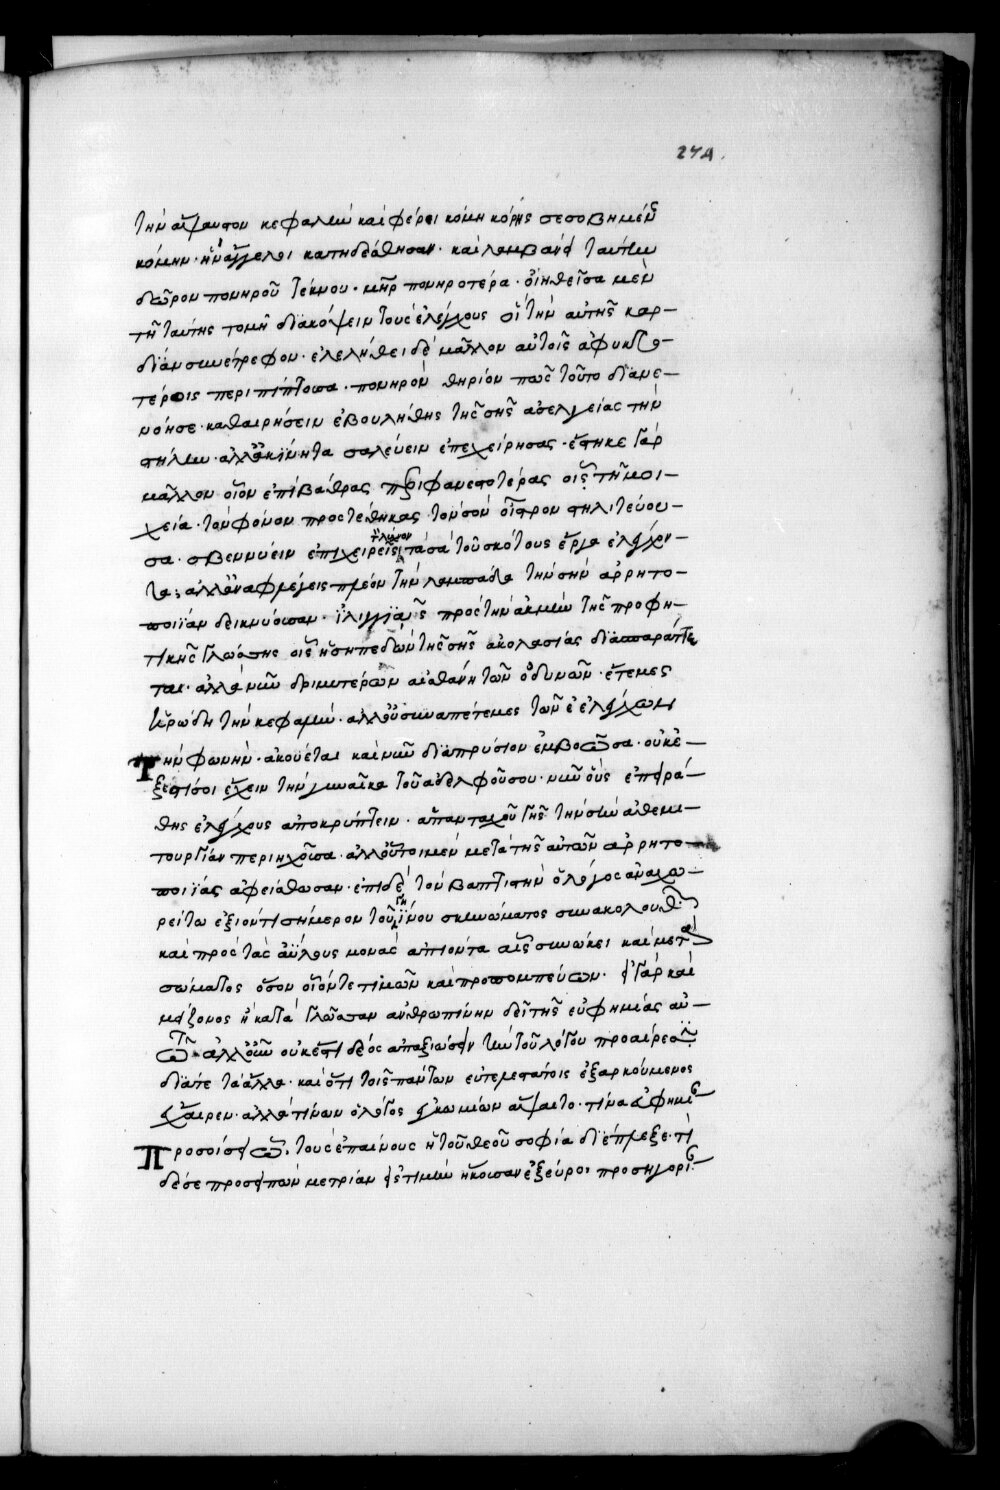 274.
τὴν ἄψαυστον κεφαλὴν καὶ φέρει κόμη κόρης σεσοβημένης
κόμην ἣν ἄγγελοι κατηδέσθησαν· καὶ λαμβάνει ταύτην
δῶρον πονηροῦ τέκνου· μῆρ πονηροτέρα· οἰηθεῖσα μὲν
τῆ ταύτης τομῆ διακόψειν τοὺς ἐλέγχους οἳ τὴν αὐτῆς καρ-
δίαν συνέτρεφον· ἐλελήθει δὲ μᾶλλον αὐτοῖς ἀφυκτο-
τέροις περιπίπτουσα· πονηρὸν θηρίον πῶς τοῦτο διανε-
νόησαι· καθαιρήσειν ἐβουλήθης τῆς σῆς ἀσελγείας τὴν
στήλην· ἀλλ' ἀκίνητα σαλεύειν ἐπεχείρησας· ἕστηκε γὰρ
μᾶλλον οἷον ἐπὶ βάθρας περιφανεστέρας οἷς τῆ μοι-
χεία· τὸν φόνον προστέθηκας τὸν σὸν οἶστρον στηλιτεύου-
σα· σβεννύειν ἐπιχειρεῖς τὰ σὰ τοῦ σκότους ἔργα ἐλέγχον-
τα· ἀλλ' ἀναφλέγεις πλέον τὴν λαμπάδα τὴν σὴν ἀρρητο-
ποιΐαν δεικνύουσαν· ἰλιγγιᾶς πρὸς τὴν ἀκμὴν τῆς προφη-
τικῆς γλώσσης οἷς ἡ σηπεδὼν τῆς σῆς ἀκολασίας διασπαράττε
ται· ἀλλὰ νῦν δριμυτέρων αἰσθάνη τῶν ὀδυνῶν· ἔτεμες
Ἡρώδη τὴν κεφαλὴν· ἀλλ' οὐ συναπέτεμες τῶν ἐλέγχων
τὴν φωνήν· ἀκούεται καὶ νῦν διαπρύσιον ἐμβοῶσα· οὐκ ἔ-
ξεστί σοι ἔχειν τὴν γυναῖκα τοῦ ἀδελφοῦ σου· νῦν οὓς ἐπειρά-
θης ἐλέγχους ἀποκρύπτειν· ἁπανταχοῦ γῆς τὴν σὴν ἀθεμι-
τουργίαν περιηχοῦσα· ἀλλ' οὗτοι μὲν μετὰ τῆς αὐτῶν ἀρρητο-
ποιΐας ἀφείσθωσαν· ἐπὶ δὲ τὸν βαπτιστὴν ὁ λόγος ἀναχω-
ρείτω ἐξιόντι σήμερον τοῦ γηΐνου σκηνώματος συνακολουθῶν
καὶ πρὸς τὰς ἀΰλους μονὰς ἀπιόντα αἷς συνώκει καὶ μετὰ
σώματος ὅσον οἷόν τε τιμῶν καὶ προπομπεύων· εἰ γὰρ καὶ
μείζονος ἢ κατὰ γλῶσσαν ἀνθρωπίνην δεῖ τῆς εὐφημίας αὐ-
τῶ· ἀλλ' οὖν οὐκέτι δέος ἀπαξιώσειν τὴν τοῦ λόγου προαίρεσιν
διά τε τἄλλα· καὶ ὅτι τοῖς πάντων εὐτελεστάτοις ἐξαρκούμενος
ἔχαιρεν· ἀλλὰ τίνων ὁ λόγος ἐγκωμίων ἅψαιτο· τίνα εὐφημί-
προσοίσει ὦ τοὺς ἐπαίνους ἡ τοῦ θεοῦ σοφία διέπλεξε· τί
δέ σε προσειπὼν μετρίαν εἰς τιμὴν ἥκουσαν ἐξεύροι προσηγορί-